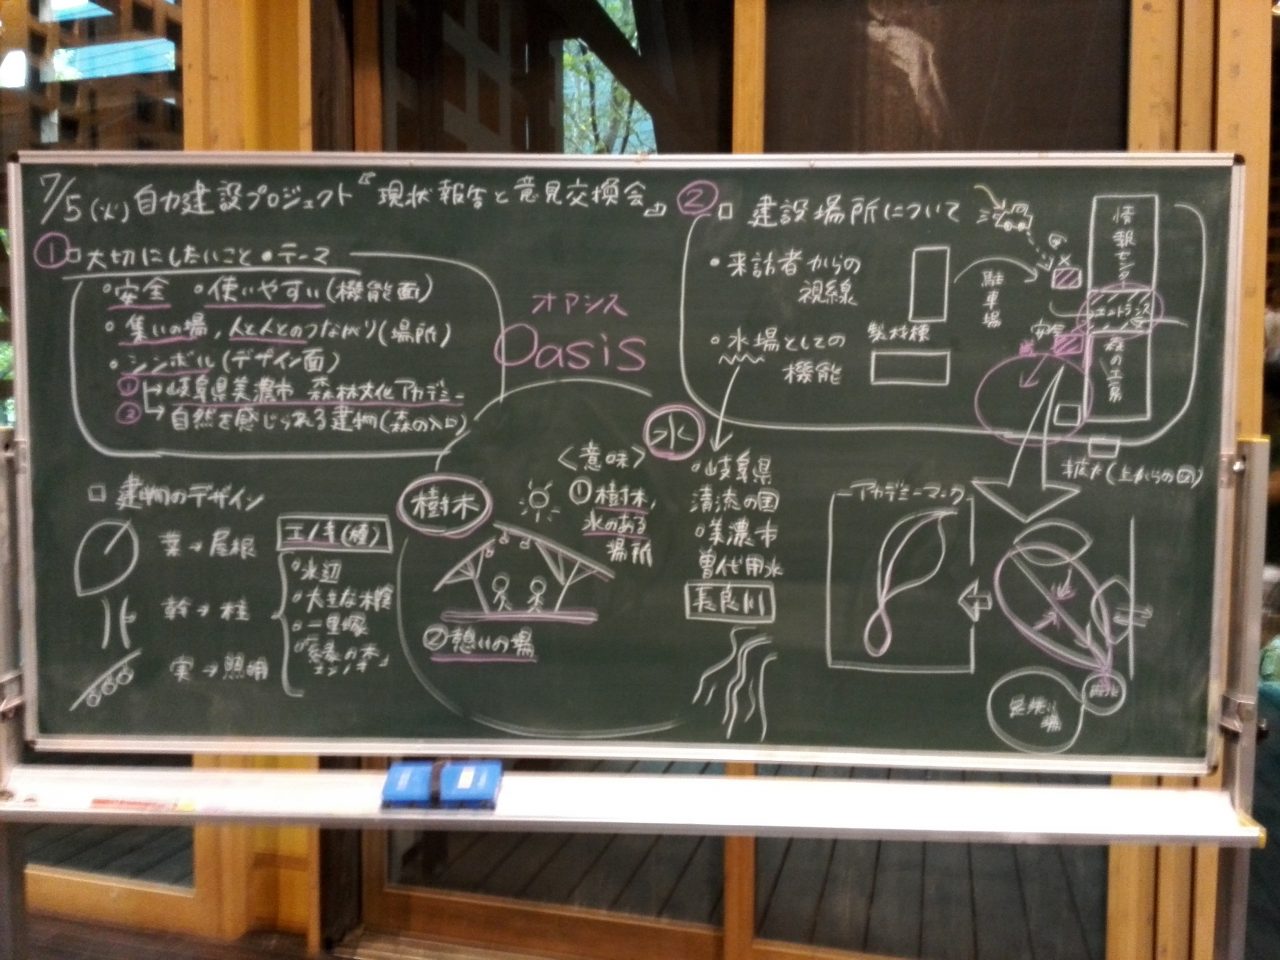 7/5(火) 自力建設プロジェクト『現状報告と意見交換会』
① □ 大切にしたいこと・テーマ
・安全 ・使いやすい(機能面)
・集いの場, 人と人とのつながり(場所)
・シンボル(デザイン面)
① → 岐阜県美濃市 森林文化アカデミー
② → 自然を感じられる建物(森の入口)
□ 建物のデザイン
葉→屋根
幹→柱
実→照明
エノキ(榎)
・水辺
・大きな木陰
・一里塚
オアシス
Oasis
樹木
水
<意味>
①樹木,
水のある
場所
②憩いの場
② □ 建設場所について
・来訪者からの
視線
・水場としての
機能
・岐阜県
清流の国
・美濃市
曽代用水
長良川
製材棟
駐車場
情報センター
エントランス
森の工房
安全
拡大(上からの図)
アカデミーマーク